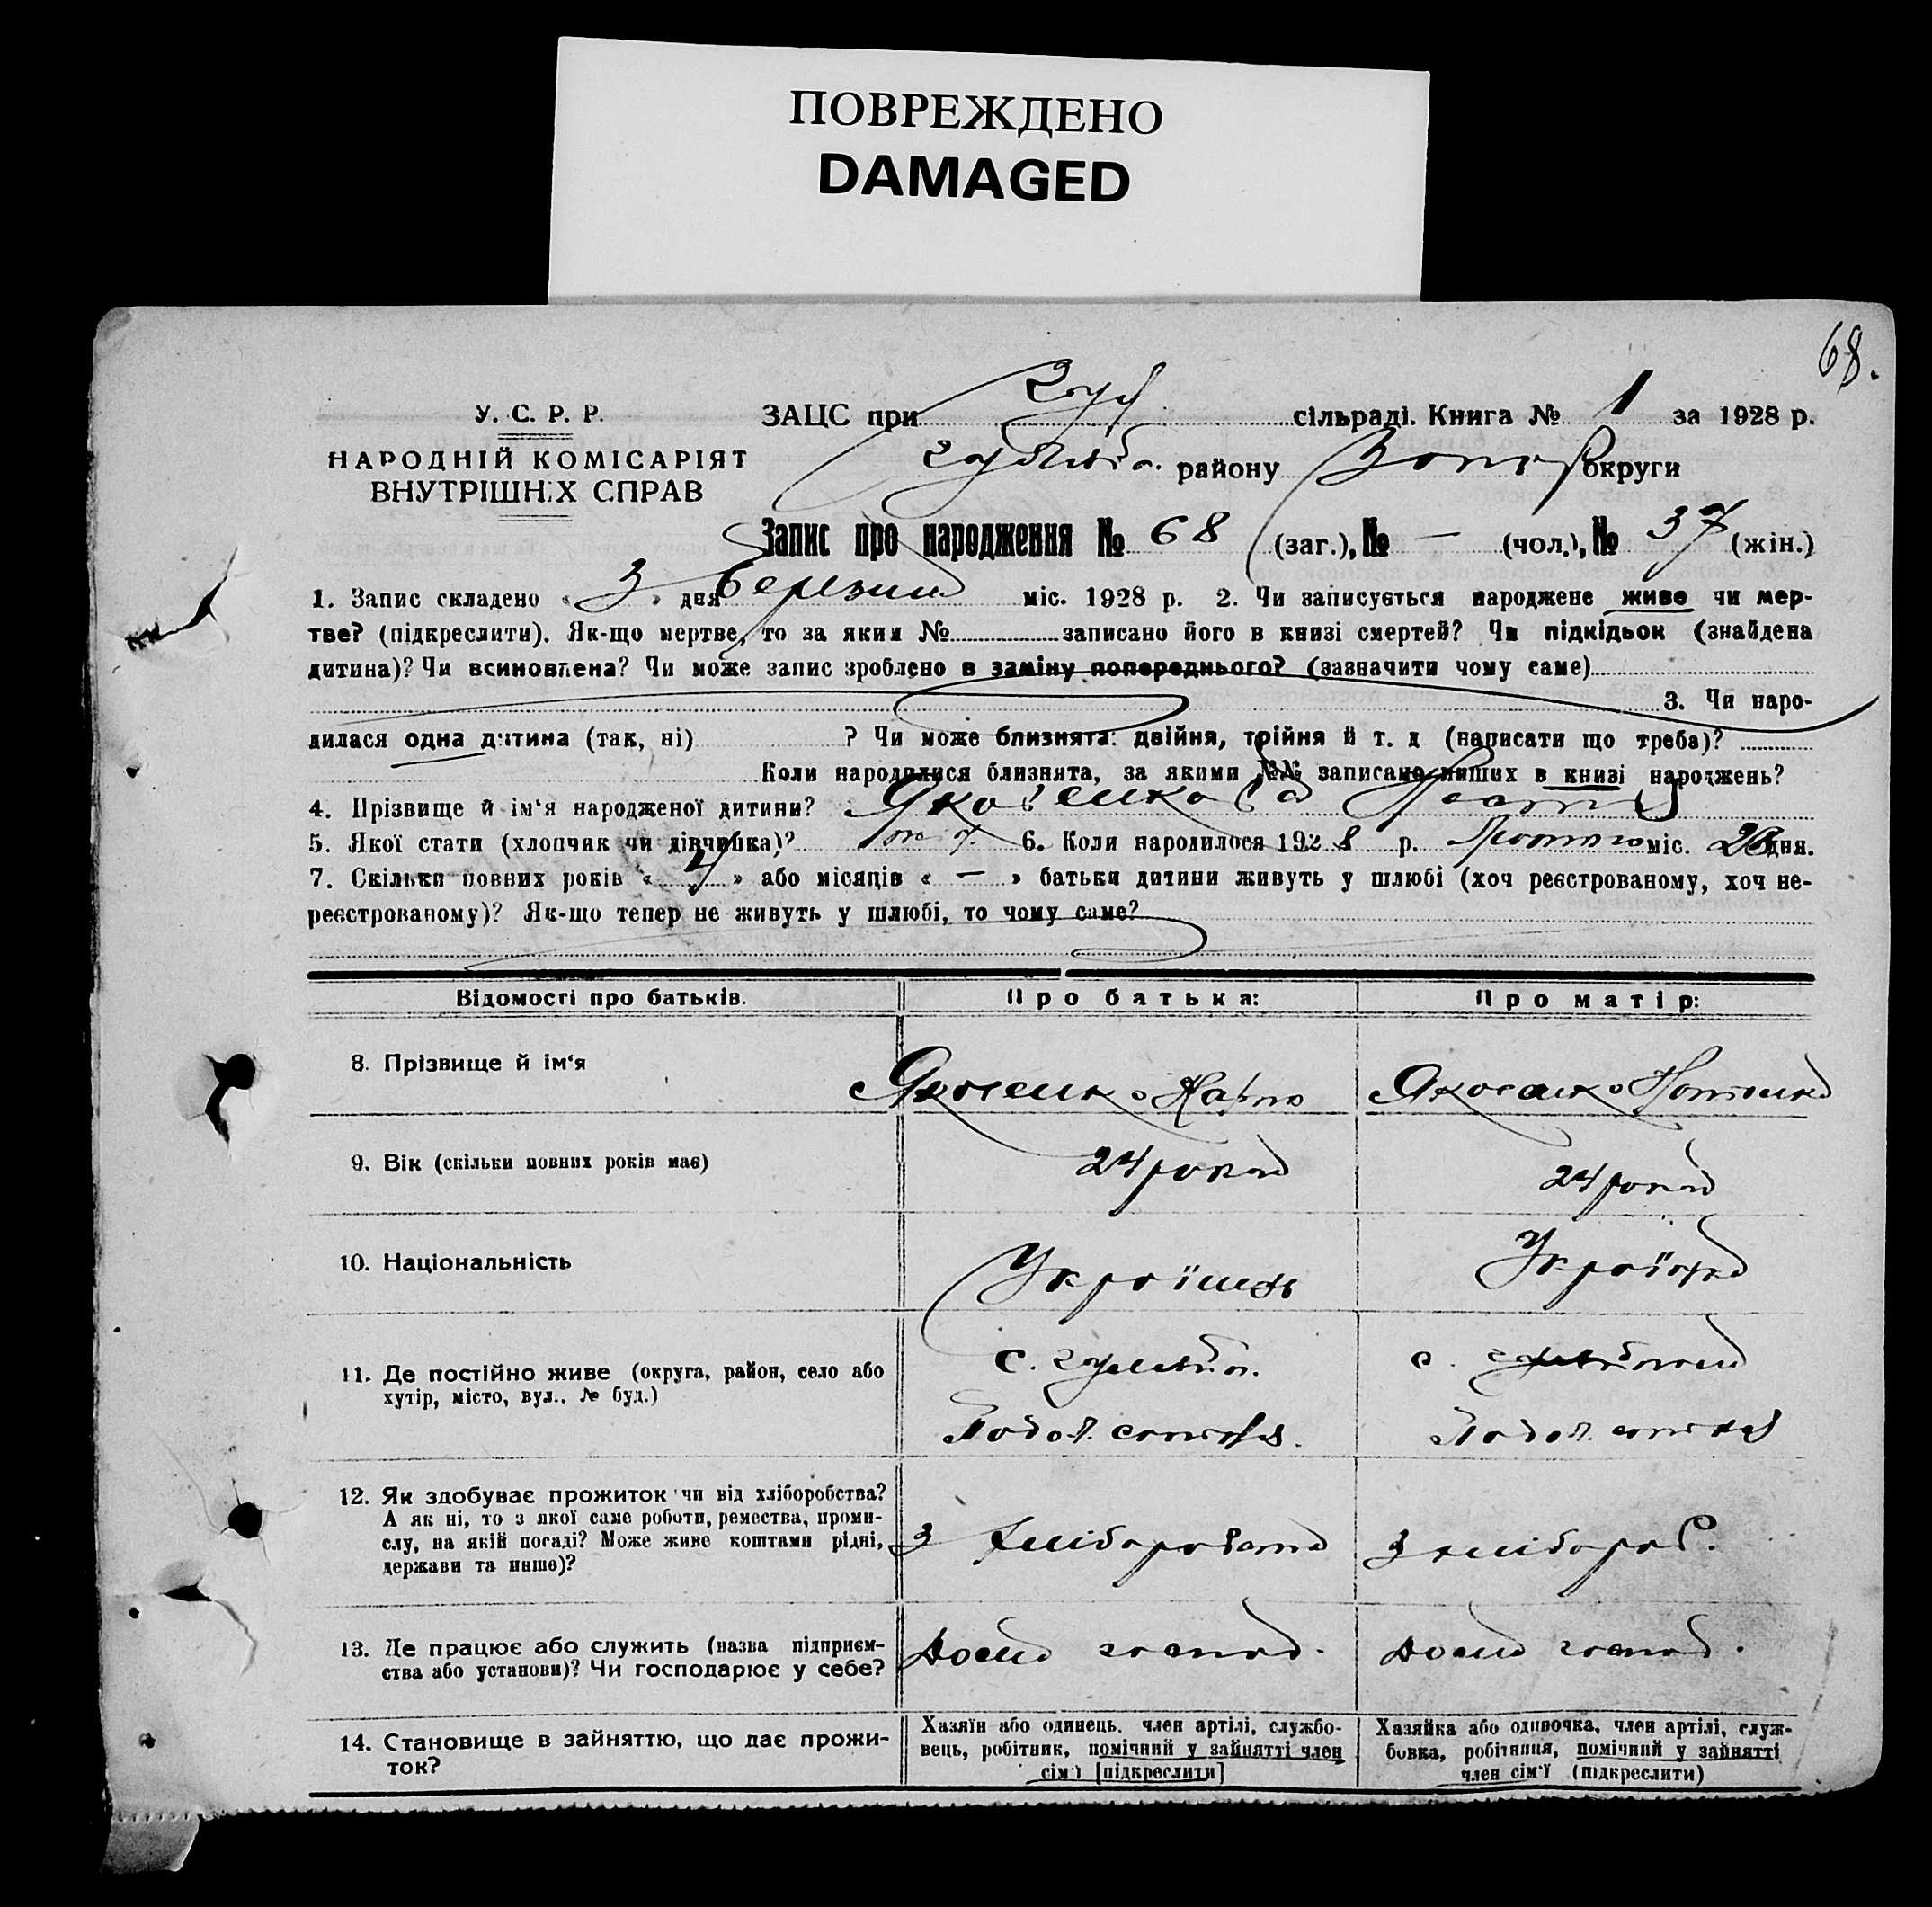 ПОВРЕЖДЕНО
DAMAGED
68.
У. С. Р. Р.
НАРОДНІЙ КОМІСАРІЯТ
ВНУТРІШНІХ СПРАВ
ЗАЦС при сільраді. Книга № 1 за 1928 р.
району Запор округи
Запис про народження № 68 (заг.), № — (чол.), № 37 (жін.)
1. Запис складено « 3 » дня березня міс. 1928 р. 2. Чи записується народжене живе чи мер-
тве? (підкреслити). Як-що мертве, то за яким № записано його в книзі смертей? Чи підкідьок (знайдена
дитина)? Чи всиновлена? Чи може запис зроблено в заміну попереднього? (зазначити чому саме)
3. Чи наро-
дилася одна дитина (так, ні) ? Чи може близнята: двійня, трійня й т. д (написати що треба)?
Коли народилися близнята, за якими №№ записано инших в книзі народжень?
4. Прізвище й ім'я народженої дитини? Яковенкова
5. Якої стати (хлопчик чи дівчинка)? 6. Коли народилося 1928 р. Лютого міс. 28 дня.
7. Скільки повних років « 4 » або місяців « — » батьки дитини живуть у шлюбі (хоч реєстрованому, хоч не-
реєстрованому)? Як-що тепер не живуть у шлюбі, то чому саме?
Відомості про батьків. Про батька: Про матір:
8. Прізвище й ім'я Яковенко Карпо Яковенко
9. Вік (скільки повних років має) 24 роки 24 роки
10. Національність Українець Українка
11. Де постійно живе (округа, район, село або
хутір, місто, вул.. № буд.)
12. Як здобуває прожиток чи від хліборобства?
А як ні, то з якої саме роботи, ремества, проми-
слу, на якій посаді? Може живе коштами рідні,
держави та инше)?
З хліборобства З хлібороб.
13. Де працює або служить (назва підприєм-
ства або установи)? Чи господарює у себе?
Дома господ. Дома господ.
14. Становище в зайняттю, що дає прожи-
ток?
Хазяїн або одинець. член артілі, службо-
вець, робітник, помічний у зайнятті член
сім'ї [підкреслити]
Хазяйка або одиночка, член артілі, служ-
бовка, робітниця, помічний у зайнятті
член сім'ї (підкреслити)